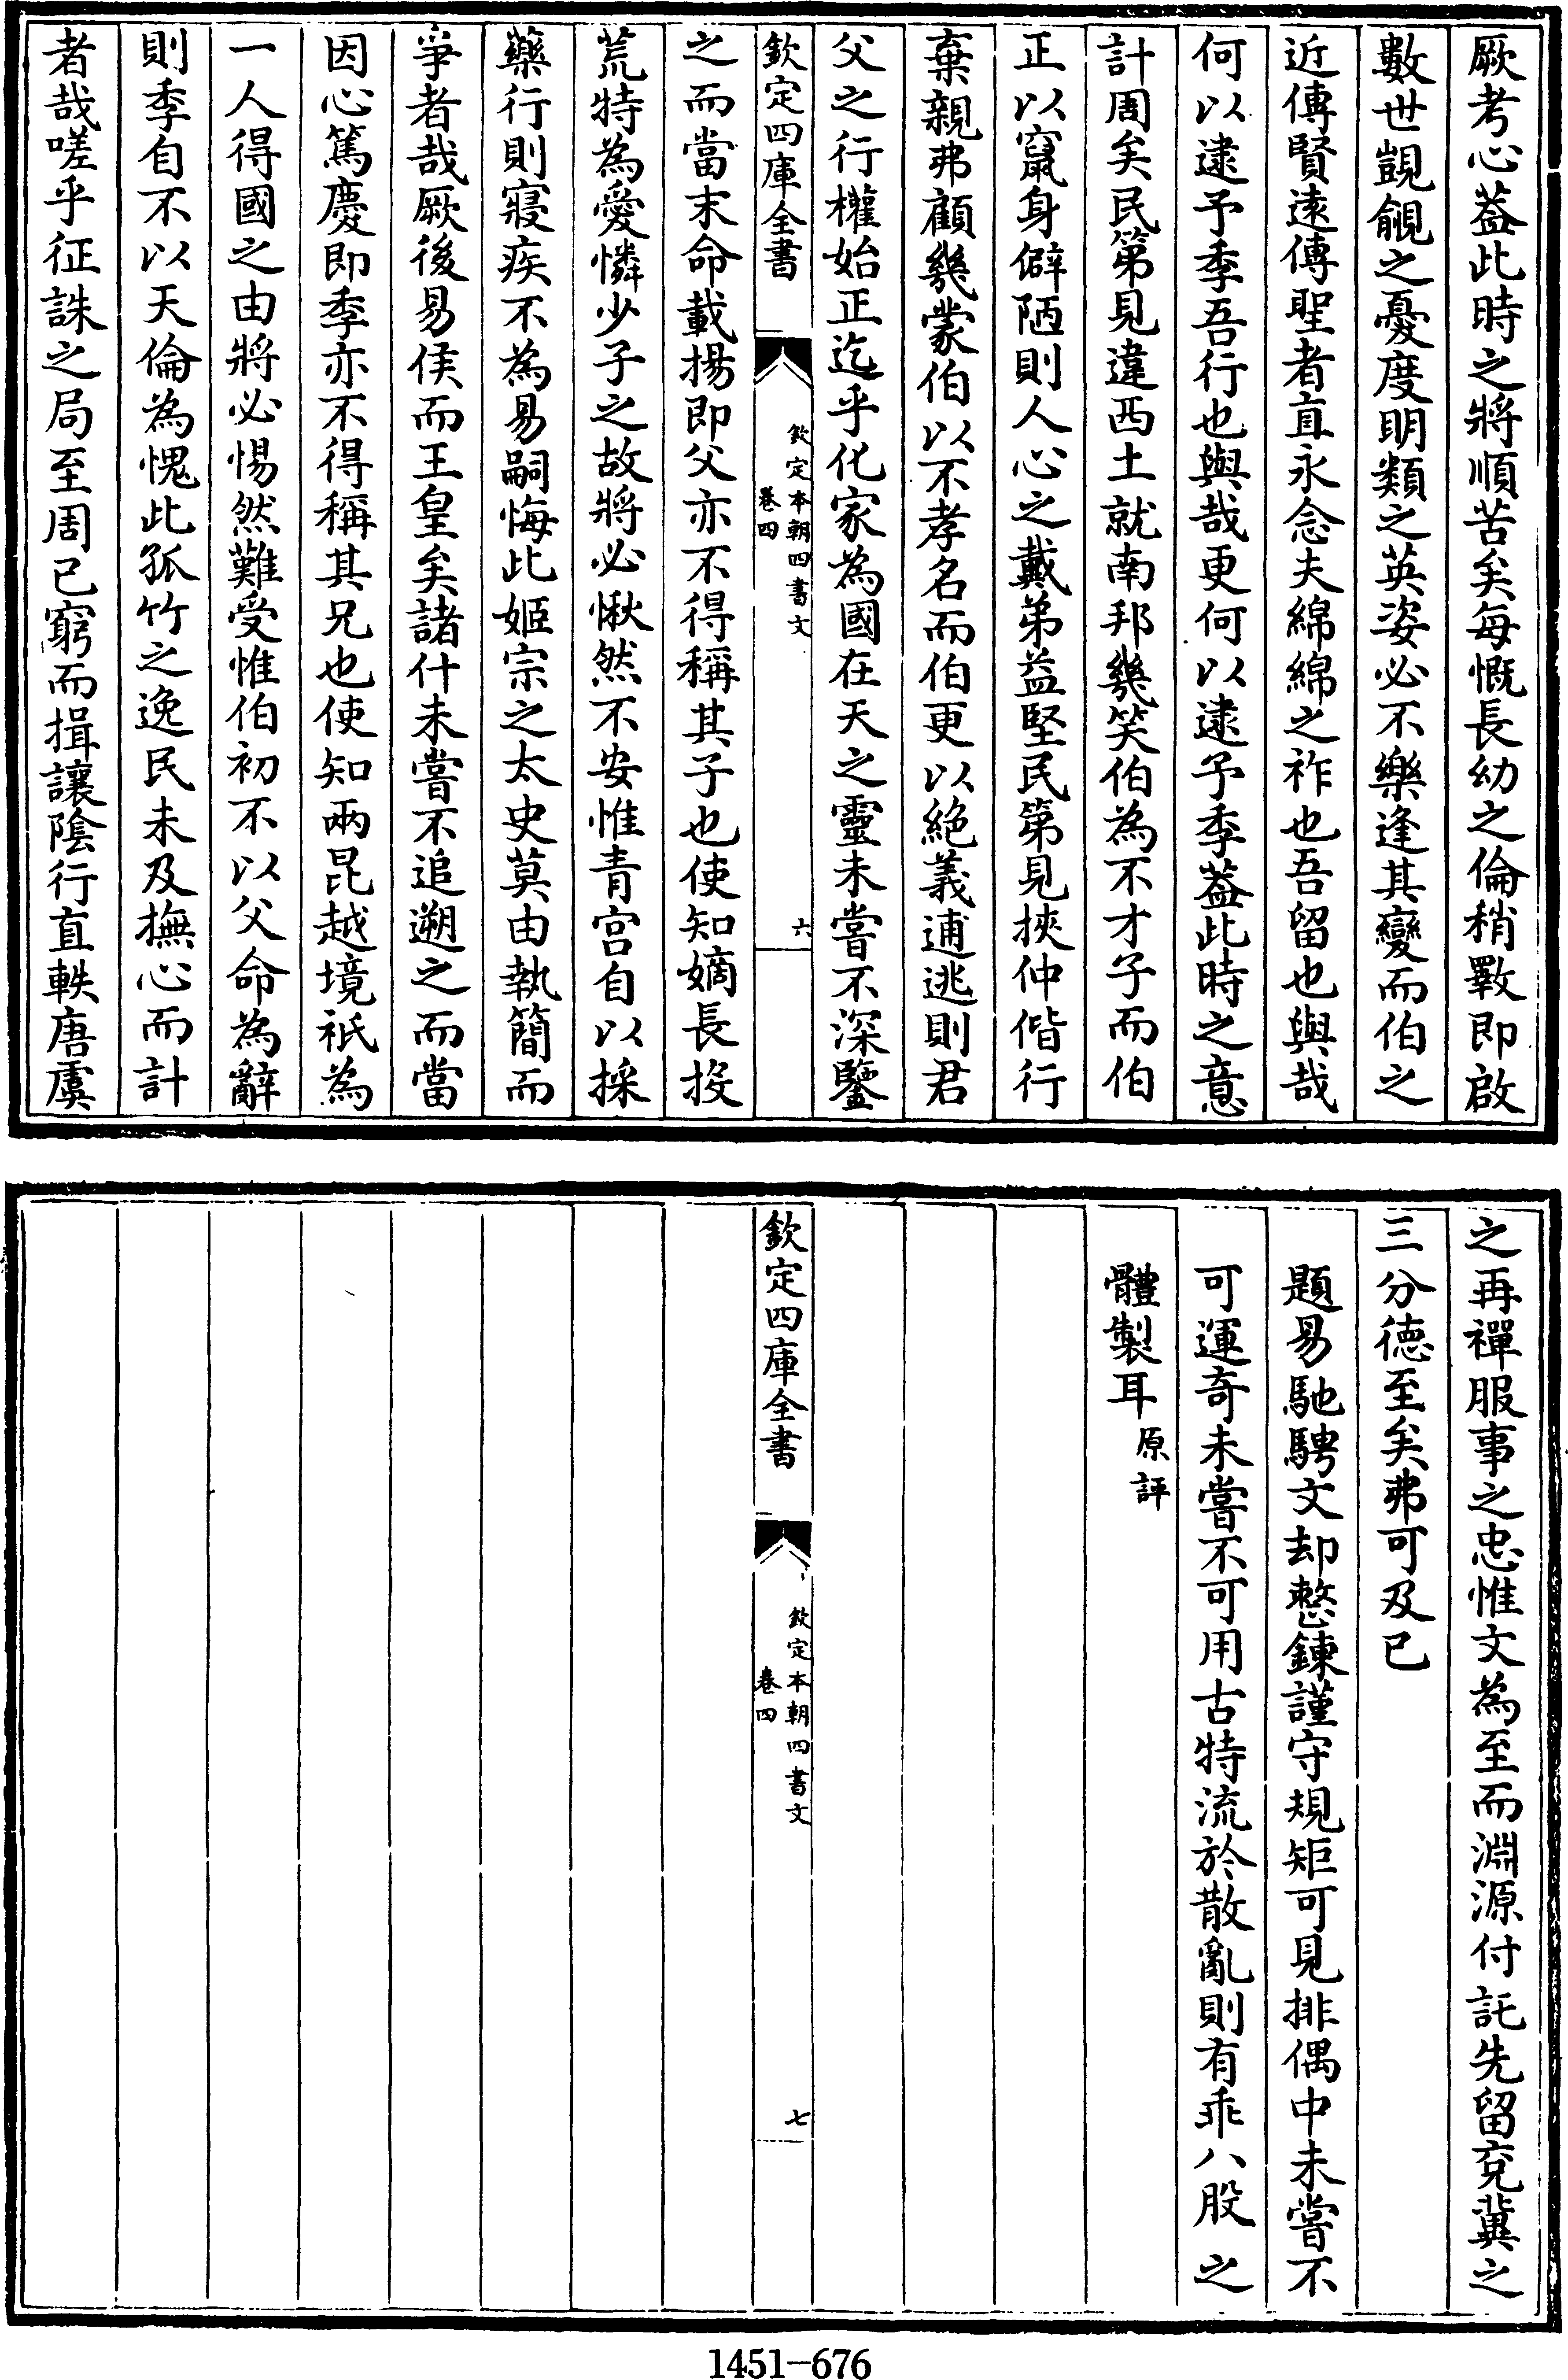 厥考心葢此時之將順苦矣每慨長幼之倫稍斁即啟
數世覬覦之憂度明類之英姿必不樂逢其變而伯之
近傳賢遠傳聖者直永念夫綿綿之祚也吾留也與哉
何以逮予季吾行也與哉更何以逮予季葢此時之意
計周矣民第見違西土就南邦幾笑伯為不才子而伯
正以竄身僻陋則人心之戴弟益堅民第見挾仲偕行
棄親弗顧幾蒙伯以不孝名而伯更以絶義逋逃則君
父之行權始正迄乎化家為國在天之靈未嘗不深鑒
欽定四庫全書
欽定本朝四書文
卷四
六
之而當末命載揚即父亦不得稱其子也使知嫡長投
荒特為愛憐少子之故將必愀然不安惟青宫自以採
藥行則寢疾不為易嗣悔此姬宗之太史莫由執簡而
爭者哉厥後易侯而王皇矣諸什未嘗不追遡之而當
因心篤慶即季亦不得稱其兄也使知兩昆越境祇為
一人得國之由將必惕然難受惟伯初不以父命為辭
則季自不以天倫為愧此孤竹之逸民未及撫心而計
者哉嗟乎征誅之局至周已窮而揖讓隂行直軼唐虞
之再禪服事之忠惟文為至而淵源付託先留兗冀之
三分徳至矣弗可及已
題易馳騁文却整鍊謹守規矩可見排偶中未嘗不
可運奇未嘗不可用古特流於散亂則有乖八股之
體製耳原評
欽定四庫全書
欽定本朝四書文
卷四
七
1451-676